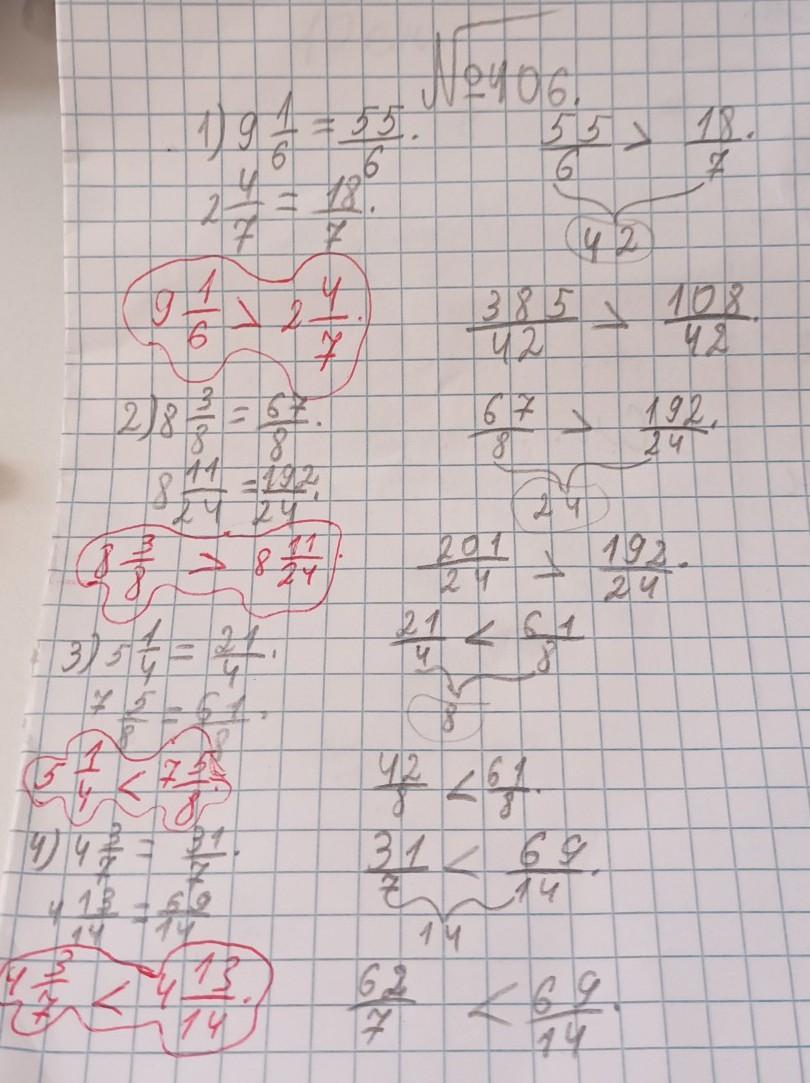 №406.
1) 9 1/6 = 55/6.
2 4/7 = 18/7.
9 1/6 > 2 4/7.
55/6 > 18/7.
42
385/42 > 108/42.
2) 8 3/8 = 67/8.
8 11/24 = 192/24.
8 3/8 > 8 11/24.
67/8 > 192/24.
24
201/24 > 192/24.
3) 5 1/4 = 21/4.
7 5/8 = 61/8.
5 1/4 < 7 5/8.
21/4 < 61/8
8
42/8 < 61/8.
4) 4 3/7 = 31/7.
4 13/14 = 69/14
4 3/7 < 4 13/14.
31/7 < 69/14.
14
62/7 < 69/14.